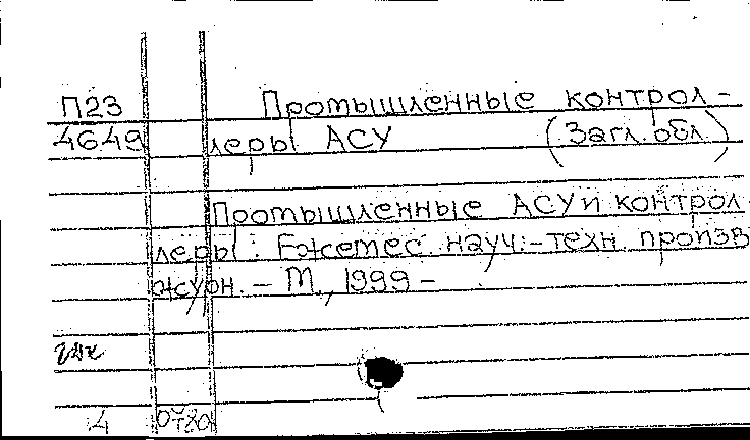 П23 Промышленные контрол-
4649 леры АСУ (Загл. обл.)
Промышленные АСУ и контрол-
леры: Ежемес. науч.-техн. произв.
журн. - М., 1999 -
4